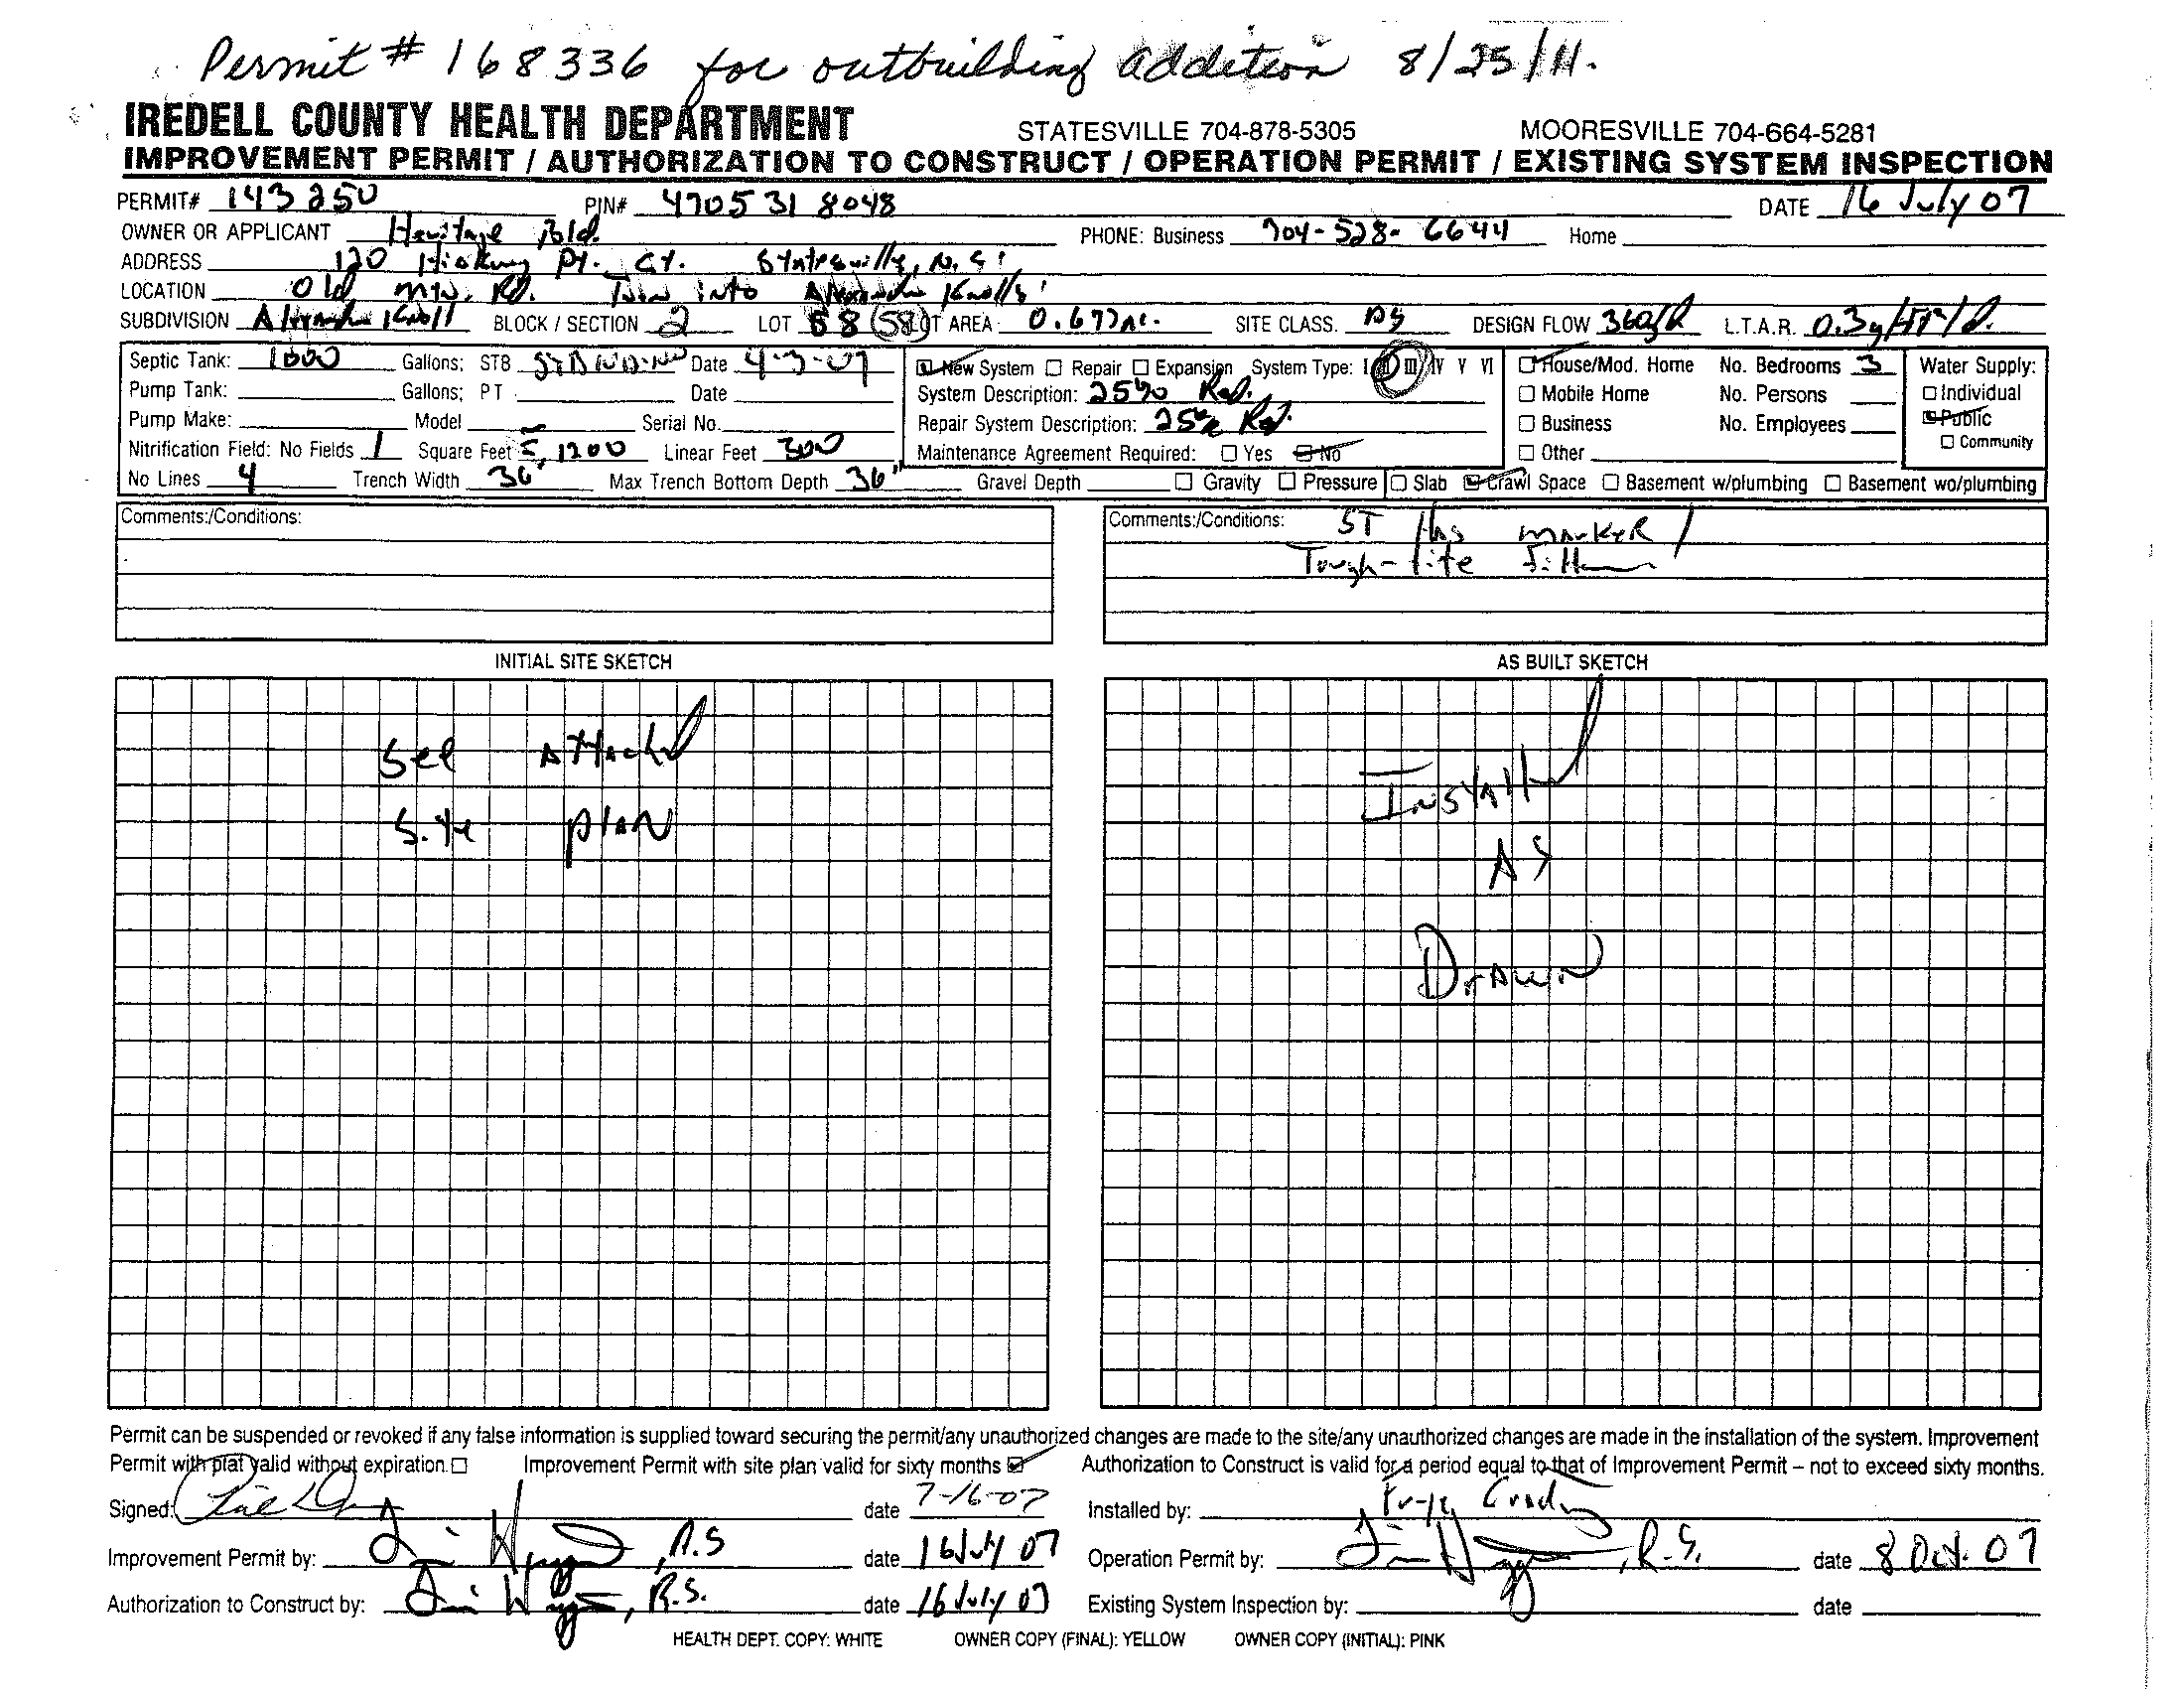 Permit # 168336 for outbuilding addition 8/25/11.
IREDELL COUNTY HEALTH DEPARTMENT STATESVILLE 704-878-5305 MOORESVILLE 704-664-5281
IMPROVEMENT PERMIT / AUTHORIZATION TO CONSTRUCT / OPERATION PERMIT / EXISTING SYSTEM INSPECTION
PERMIT# 143250 PIN# 4705 31 8048 DATE 16 July 07
OWNER OR APPLICANT Heritage Bld. PHONE: Business 704-528-6644 Home
ADDRESS 120 Hickory Pt. Ct. Statesville, N.C.
LOCATION Old Mtn. Rd. Turn into Alexander Knolls
SUBDIVISION Alexander Knoll BLOCK / SECTION 2 LOT 58 (58) LOT AREA 0.677Ac. SITE CLASS. PS DESIGN FLOW 360g/d L.T.A.R. 0.3g/ft²/d.
Septic Tank: 1000 Gallons; STB Date 4-3-07 New System Repair Expansion System Type: I II III IV V VI House/Mod. Home No. Bedrooms 3 Water Supply:
Pump Tank: Gallons; PT Date System Description: 25% Red. Mobile Home No. Persons Individual
Pump Make: Model Serial No. Repair System Description: 25% Red. Business No. Employees Public
Nitrification Field: No Fields 1 Square Feet 1200 Linear Feet 300 Maintenance Agreement Required: Yes No Other Community
No Lines 4 Trench Width 36" Max Trench Bottom Depth 36" Gravel Depth Gravity Pressure Slab Crawl Space Basement w/plumbing Basement wo/plumbing
Comments:/Conditions:
Comments:/Conditions: ST Has marker /
Tough-tite Filter
INITIAL SITE SKETCH
AS BUILT SKETCH
See Attached
Site plan
Installed
As
Drawn
Permit can be suspended or revoked if any false information is supplied toward securing the permit/any unauthorized changes are made to the site/any unauthorized changes are made in the installation of the system. Improvement
Permit with plat valid without expiration. Improvement Permit with site plan valid for sixty months Authorization to Construct is valid for a period equal to that of Improvement Permit – not to exceed sixty months.
Signed: date 7-16-07 Installed by: Grading
Improvement Permit by: , R.S date 16 July 07 Operation Permit by: , R.S. date 8 Oct. 07
Authorization to Construct by: , R.S. date 16 July 07 Existing System Inspection by: date
HEALTH DEPT. COPY: WHITE OWNER COPY (FINAL): YELLOW OWNER COPY (INITIAL): PINK